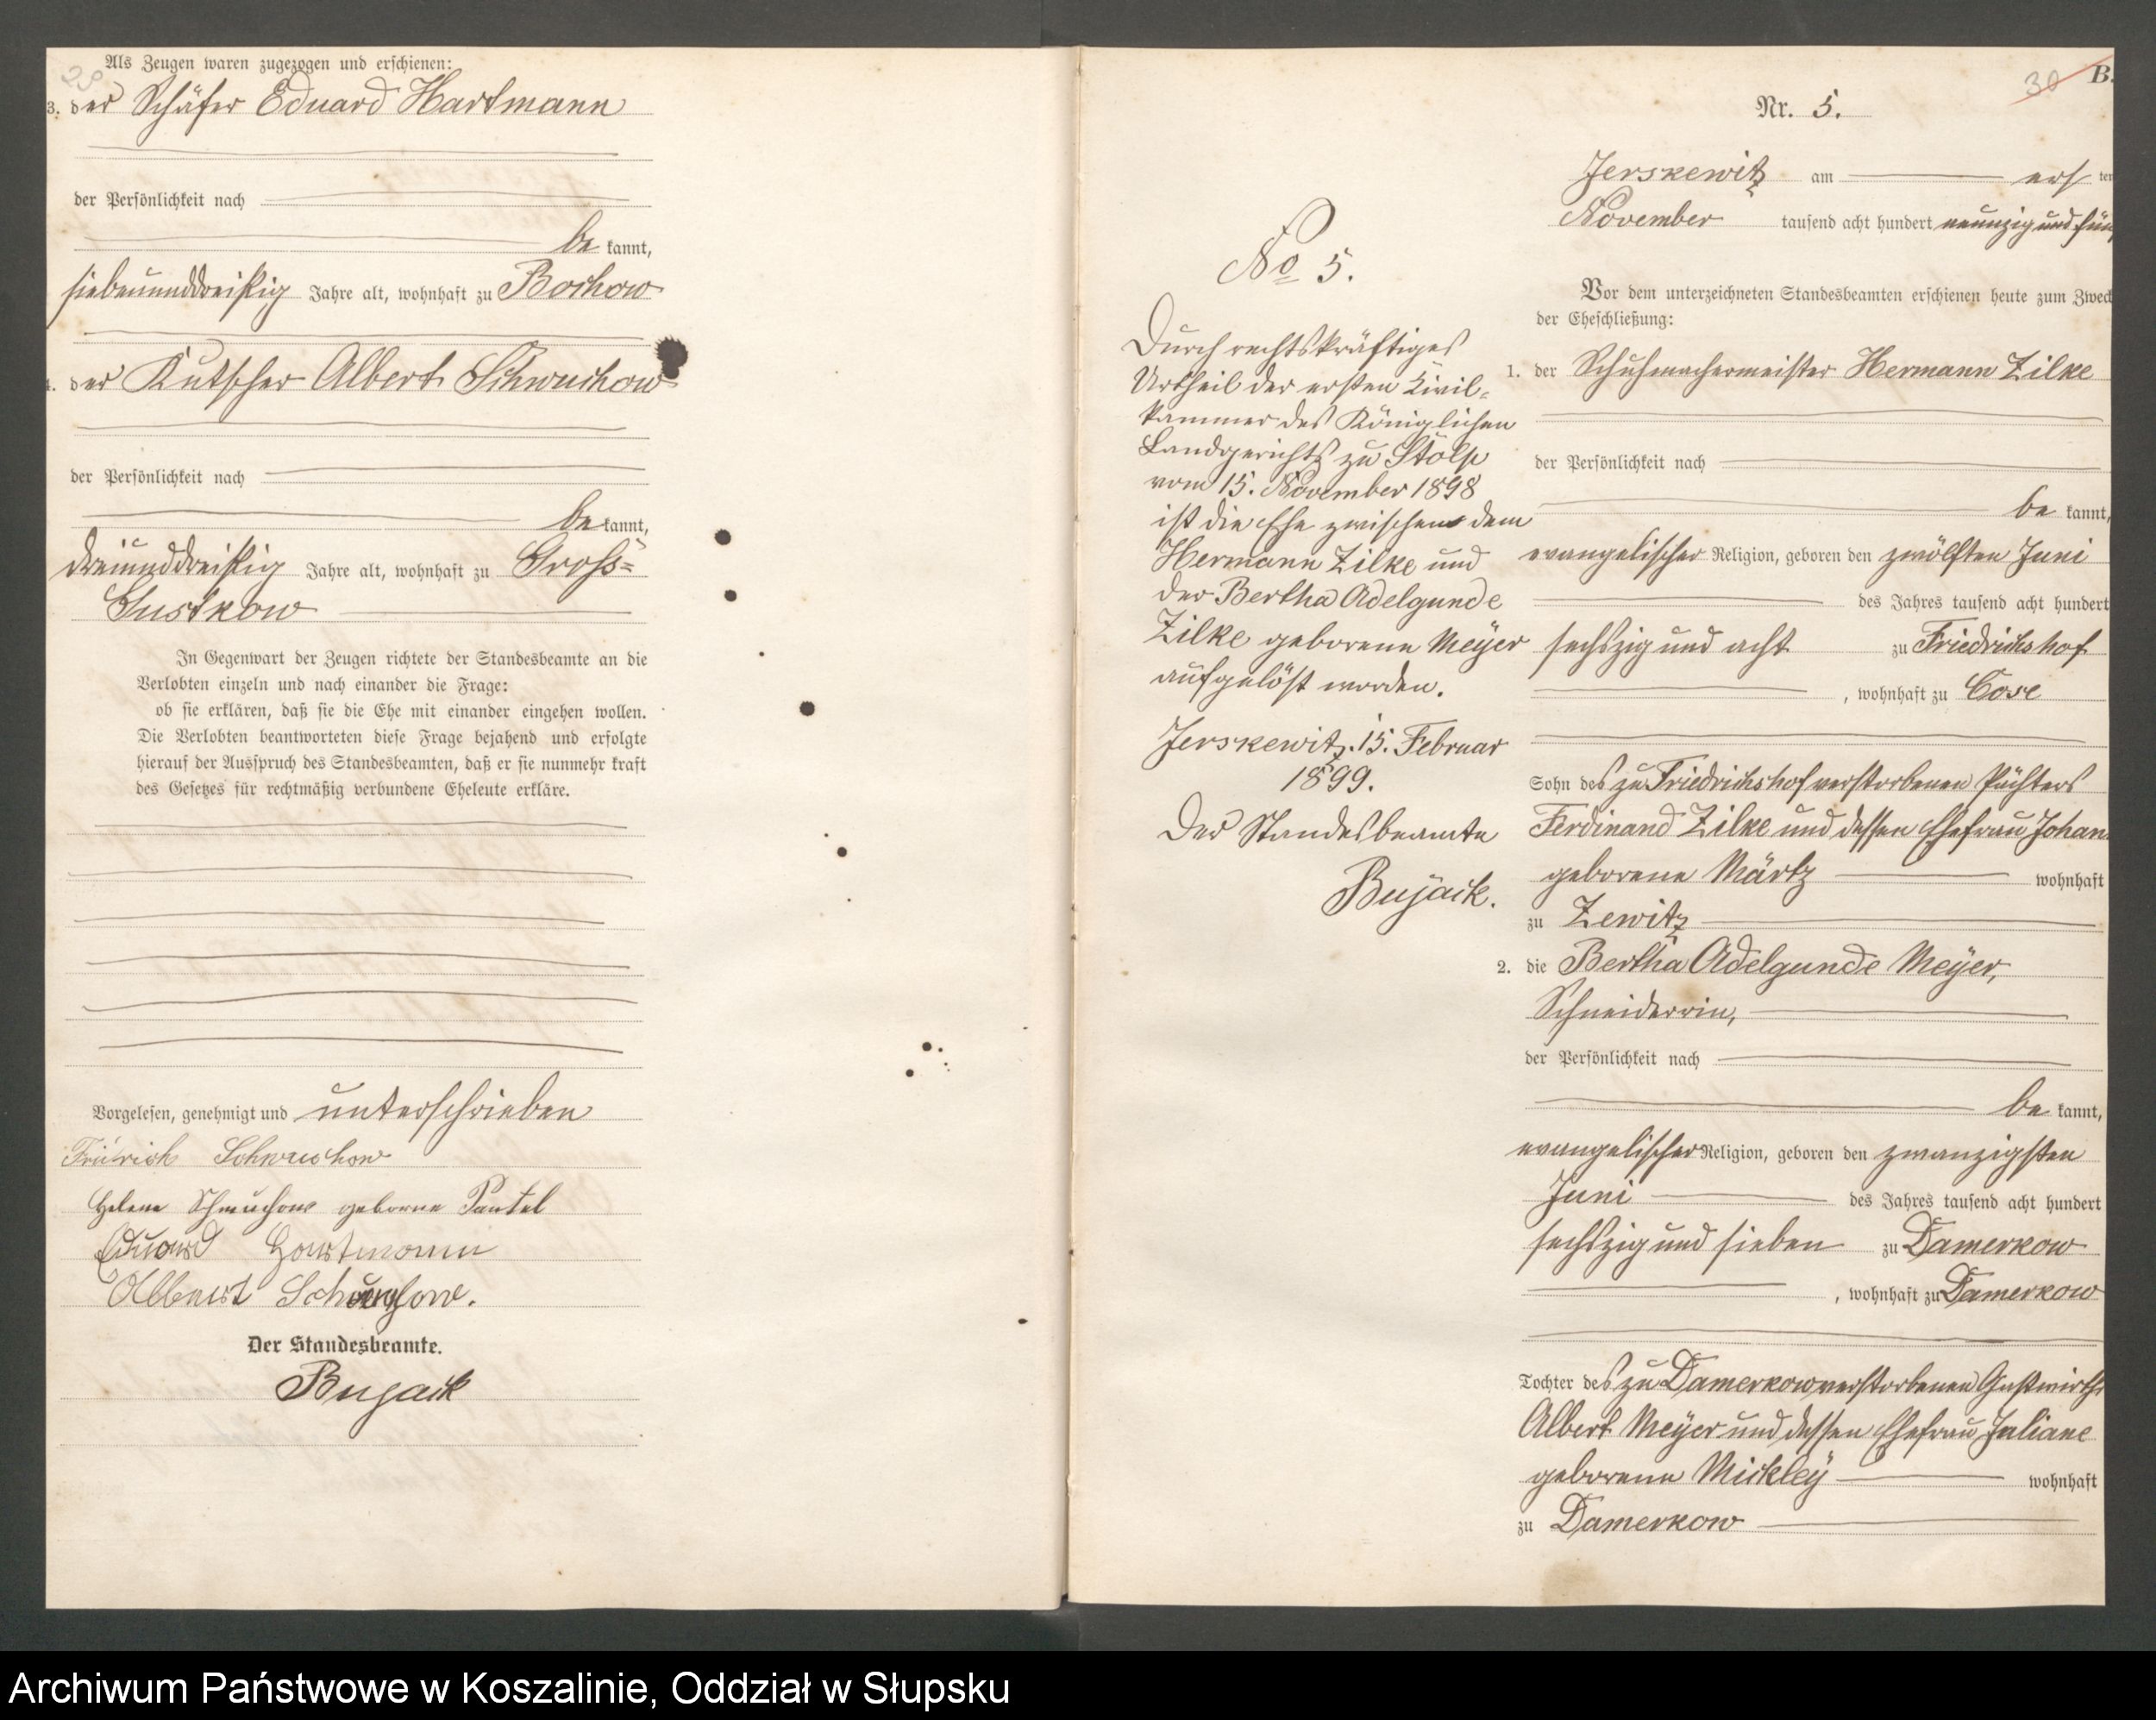 29
Als Zeugen waren zugezogen und erschienen:
3. der Schäfer Eduard Hartmann
der Persönlichkeit nach
be kannt,
siebenunddreißig Jahre alt, wohnhaft zu Bochow
der Kutscher Albert Schwuchow
der Persönlichkeit nach
be kannt,
dreiunddreißig Jahre alt, wohnhaft zu Gross=
Gustkow
In Gegenwart der Zeugen richtete der Standesbeamte an die
Verlobten einzeln und nach einander die Frage:
ob sie erklären, daß sie die Ehe mit einander eingehen wollen.
Die Verlobten beantworteten diese Frage bejahend und erfolgte
hierauf der Ausspruch des Standesbeamten, daß er sie nunmehr kraft
des Gesetzes für rechtmäßig verbundene Eheleute erkläre.
Vorgelesen, genehmigt und unterschrieben
Schwuchow
Helene Schwuchow geborne Pantel
Eduard Hartmann
Albert Schwuchow.
Der Standesbeamte.
Bujack
No 5.
Durch rechtskräftiges
Urtheil der ersten Civil=
kammer des Königlichen
Landgerichts zu Stolp
vom 15. November 1898
ist die Ehe zwischen dem
Hermann Zilke und
der Bertha Adelgunde
Zilke geborene Meÿer
aufgelöst worden.
Jerskewitz. 15. Februar
1899.
Der Standesbeamte
Bujack.
30 B.
Nr. 5.
Jerskewitz am erſ ten
November tausend acht hundert neunzig und fün
Vor dem unterzeichneten Standesbeamten erschienen heute zum Zweck
der Eheschließung:
1. der Schuhmachermeister Hermann Zilke
der Persönlichkeit nach
be kannt,
evangelischer Religion, geboren den zwölften Juni
des Jahres tausend acht hundert
sechszig und acht zu Friedrichshof
, wohnhaft zu Cose
Sohn des zu Friedrichshof verstorbenen Pächters
Ferdinand Zilke und dessen Ehefrau Johan
geborene Märtz wohnhaft
zu Zewitz
2. die Bertha Adelgunde Meÿer,
Schneiderin,
der Persönlichkeit nach
be kannt,
evangelischer Religion, geboren den zwanzigsten
Juni des Jahres tausend acht hundert
sechszig und sieben zu Damerkow
, wohnhaft zu Damerkow
Tochter des zu Damerkow verstorbenen Gastwirths
Albert Meÿer und dessen Ehefrau Juliane
geborene Mickleÿ wohnhaft
zu Damerkow
Archiwum Państwowe w Koszalinie, Oddział w Słupsku